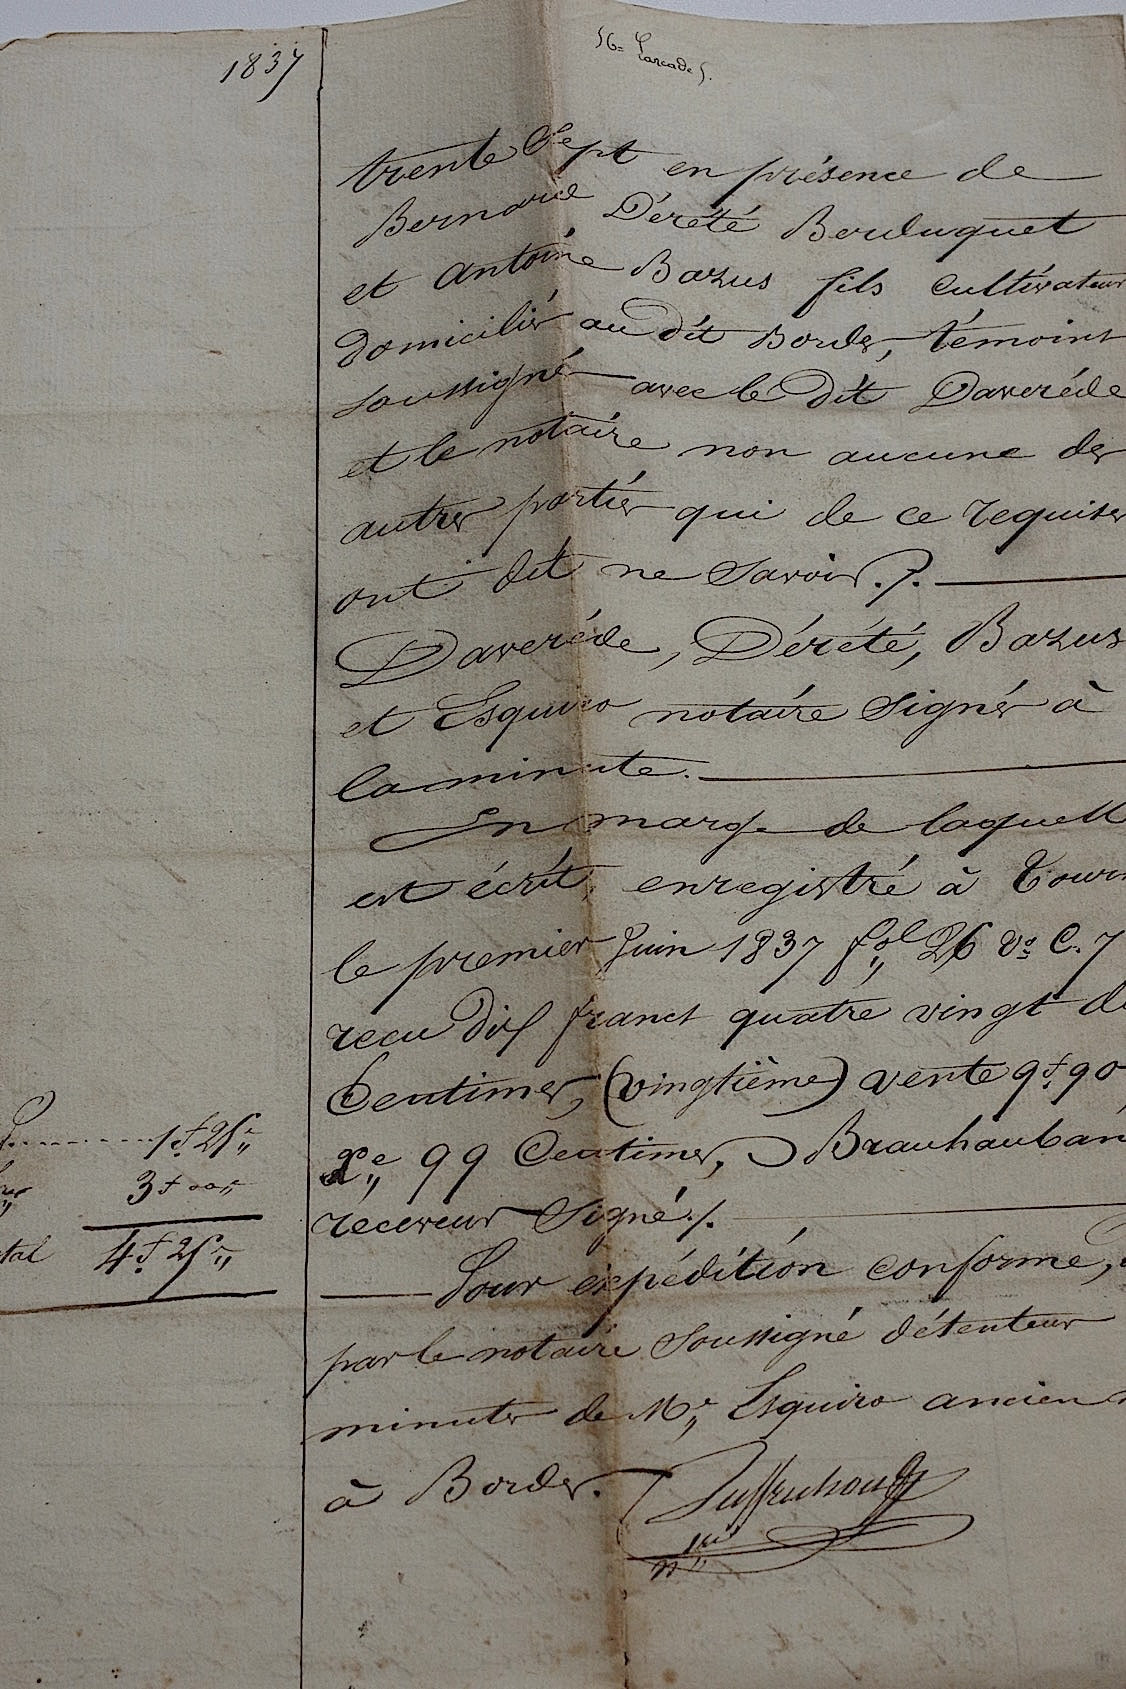 1837
Larcade
trente Sept en présence de
Bernard Dérété Berduquet
et antoine Bazus fils cultivateur
domiciliés au dit Bordes, témoins
soussignés avec le dit Daveréde
et le notaire non aucune des
autres parties qui de ce requises
ont dit ne Savoir./.
Daveréde, Dérété, Bazus
et Esquiro notaire Signés à
la minute.
En marge de laquell
est écrit, enregistré à Tourn
le premier Juin 1837 fol 26 Vo C. 7
recu dix francs quatre vingt d
Centimes, (vingtième) vente 9f. 90
De 99 Centimes, Brauhauban
receveur Signé./.
Pour expédition conforme,
par le notaire Soussigné détenteur
minutes de Me Esquiro ancien
à Bordes.
1f 25c
3f 00c
tal 4f 25c